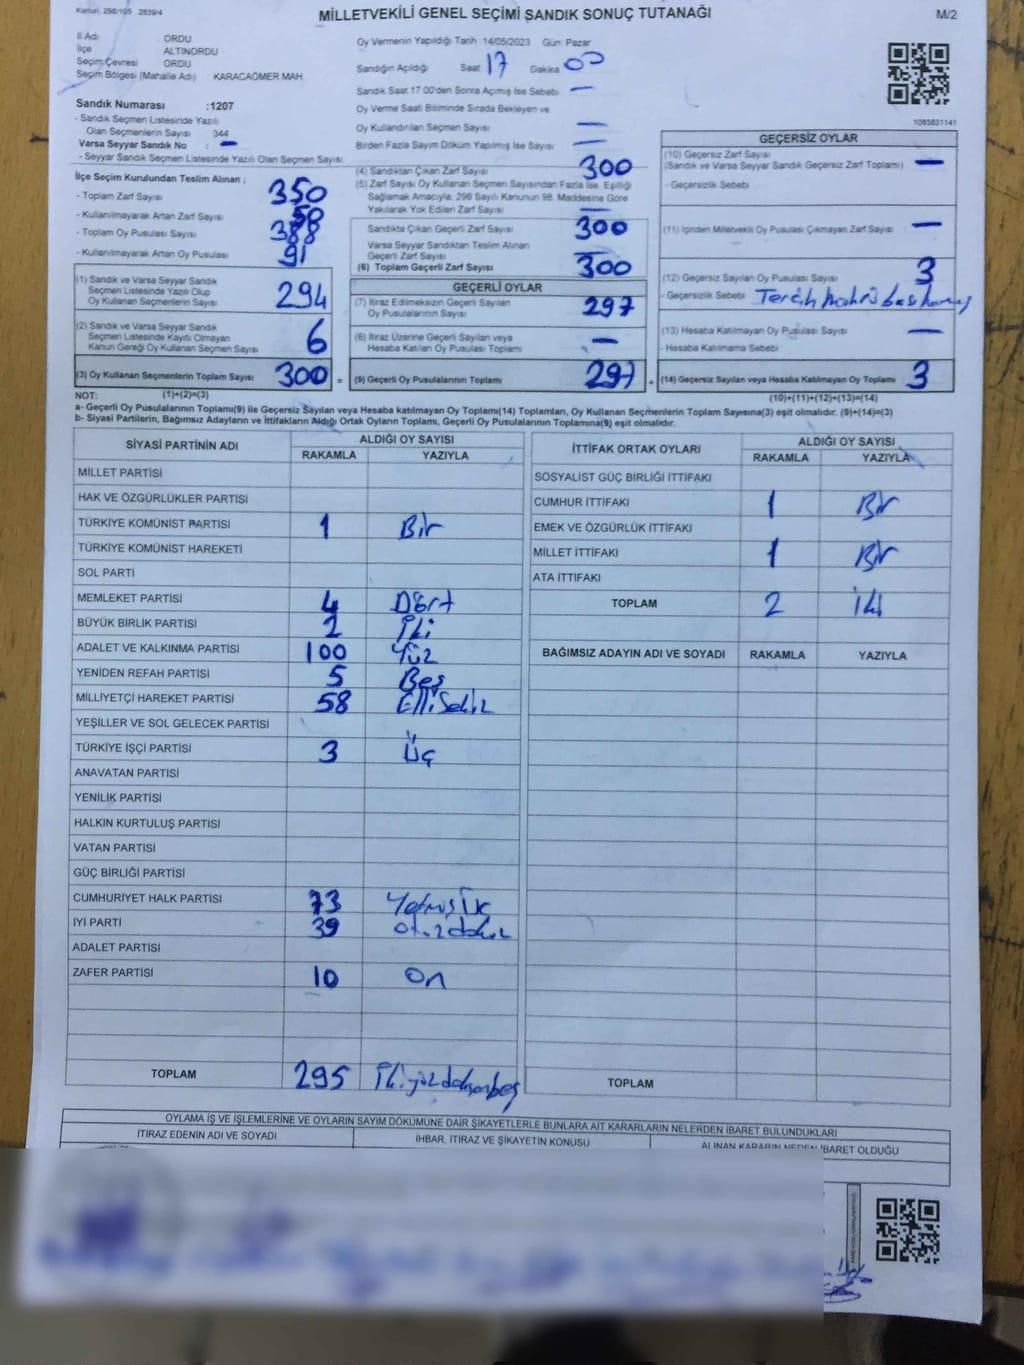 Kanun: 298/105 2839/4
MİLLETVEKİLİ GENEL SEÇİMİ SANDIK SONUÇ TUTANAĞI
M/2
İl Adı ORDU
İlçe ALTINORDU
Seçim Çevresi ORDU
Seçim Bölgesi (Mahalle Adı) KARACAÖMER MAH
Sandık Numarası :1207
- Sandık Seçmen Listesinde Yazılı
Olan Seçmenlerin Sayısı 344
Varsa Seyyar Sandık No : —
- Seyyar Sandık Seçmen Listesinde Yazılı Olan Seçmen Sayısı:
Oy Vermenin Yapıldığı Tarih 14/05/2023 Gün Pazar
Sandığın Açıldığı Saat 17 Dakika 00
Sandık Saat 17:00'den Sonra Açımış İse Sebebi —
Oy Verme Saati Bitiminde Sırada Bekleyen ve
Oy Kullandırılan Seçmen Sayısı —
Birden Fazla Sayım Döküm Yapılmış İse Sayısı —
1083831141
İlçe Seçim Kurulundan Teslim Alınan ;
- Toplam Zarf Sayısı 350
- Kullanılmayarak Artan Zarf Sayısı 50
- Toplam Oy Pusulası Sayısı 388
- Kullanılmayarak Artan Oy Pusulası 91
(1) Sandık ve Varsa Seyyar Sandık
Seçmen Listesinde Yazılı Olup
Oy Kullanan Seçmenlerin Sayısı 294
(2) Sandık ve Varsa Seyyar Sandık
Seçmen Listesinde Kayıtlı Olmayan
Kanun Gereği Oy Kullanan Seçmen Sayısı 6
(3) Oy Kullanan Seçmenlerin Toplam Sayısı 300 =
(4) Sandıktan Çıkan Zarf Sayısı 300
(5) Zarf Sayısı Oy Kullanan Seçmen Sayısından Fazla İse, Eşitliği
Sağlamak Amacıyla, 298 Sayılı Kanunun 98. Maddesine Göre
Yakılarak Yok Edilen Zarf Sayısı —
Sandıkta Çıkan Geçerli Zarf Sayısı 300
Varsa Seyyar Sandıktan Teslim Alınan
Geçerli Zarf Sayısı —
(6) Toplam Geçerli Zarf Sayısı 300
GEÇERLİ OYLAR
(7) İtiraz Edilmeksizin Geçerli Sayılan
Oy Pusulalarının Sayısı 297
(8) İtiraz Üzerine Geçerli Sayılan veya
Hesaba Katılan Oy Pusulası Toplamı —
(9) Geçerli Oy Pusulalarının Toplamı 297 +
GEÇERSİZ OYLAR
(10) Geçersiz Zarf Sayısı
(Sandık ve Varsa Seyyar Sandık Geçersiz Zarf Toplamı) —
- Geçersizlik Sebebi
(11) İçinden Milletvekili Oy Pusulası Çıkmayan Zarf Sayısı —
(12) Geçersiz Sayılan Oy Pusulası Sayısı 3
- Geçersizlik Sebebi Tercih
(13) Hesaba Katılmayan Oy Pusulası Sayısı —
- Hesaba Katılmama Sebebi
(14) Geçersiz Sayılan veya Hesaba Katılmayan Oy Toplamı 3
NOT: (1)+(2)=(3) (10)+(11)+(12)+(13)=(14)
a- Geçerli Oy Pusulalarının Toplamı(9) ile Geçersiz Sayılan veya Hesaba katılmayan Oy Toplamı(14) Toplamları, Oy Kullanan Seçmenlerin Toplam Sayısına(3) eşit olmalıdır. (9)+(14)=(3)
b- Siyasi Partilerin, Bağımsız Adayların ve İttifakların Aldığı Ortak Oyların Toplamı, Geçerli Oy Pusulalarının Toplamına(9) eşit olmalıdır.
SİYASİ PARTİNİN ADI ALDIĞI OY SAYISI
RAKAMLA YAZIYLA
MİLLET PARTİSİ
HAK VE ÖZGÜRLÜKLER PARTİSİ
TÜRKİYE KOMÜNİST PARTİSİ 1 Bir
TÜRKİYE KOMÜNİST HAREKETİ
SOL PARTİ
MEMLEKET PARTİSİ 4 Dört
BÜYÜK BİRLİK PARTİSİ 2 İki
ADALET VE KALKINMA PARTİSİ 100 Yüz
YENİDEN REFAH PARTİSİ 5 Beş
MİLLİYETÇİ HAREKET PARTİSİ 58 Elli Sekiz
YEŞİLLER VE SOL GELECEK PARTİSİ
TÜRKİYE İŞÇİ PARTİSİ 3 Üç
ANAVATAN PARTİSİ
YENİLİK PARTİSİ
HALKIN KURTULUŞ PARTİSİ
VATAN PARTİSİ
GÜÇ BİRLİĞİ PARTİSİ
CUMHURİYET HALK PARTİSİ 73 Yetmiş Üç
İYİ PARTİ 39 Otuz dokuz
ADALET PARTİSİ
ZAFER PARTİSİ 10 On
TOPLAM 295 İki yüz doksan beş
İTTİFAK ORTAK OYLARI ALDIĞI OY SAYISI
RAKAMLA YAZIYLA
SOSYALİST GÜÇ BİRLİĞİ İTTİFAKI
CUMHUR İTTİFAKI 1 Bir
EMEK VE ÖZGÜRLÜK İTTİFAKI
MİLLET İTTİFAKI 1 Bir
ATA İTTİFAKI
TOPLAM 2 İki
BAĞIMSIZ ADAYIN ADI VE SOYADI RAKAMLA YAZIYLA
TOPLAM
OYLAMA İŞ VE İŞLEMLERİNE VE OYLARIN SAYIM DÖKÜMÜNE DAİR ŞİKAYETLERLE BUNLARA AİT KARARLARIN NELERDEN İBARET BULUNDUKLARI
İTİRAZ EDENİN ADI VE SOYADI İHBAR, İTİRAZ VE ŞİKAYETİN KONUSU ALINAN KARARIN NEDEN İBARET OLDUĞU